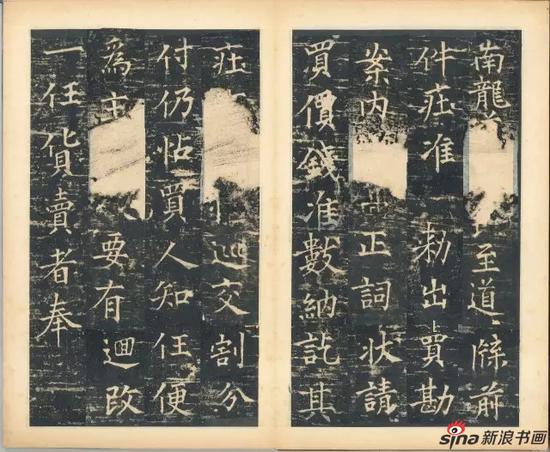 南龍至道牒前
件庄准勑出賣勘
案内正詞狀請
買價錢准數納訖其
庄巡交割分
付仍帖買人知任便
爲主要有迴改
一任貨賣者奉
sina新浪书画